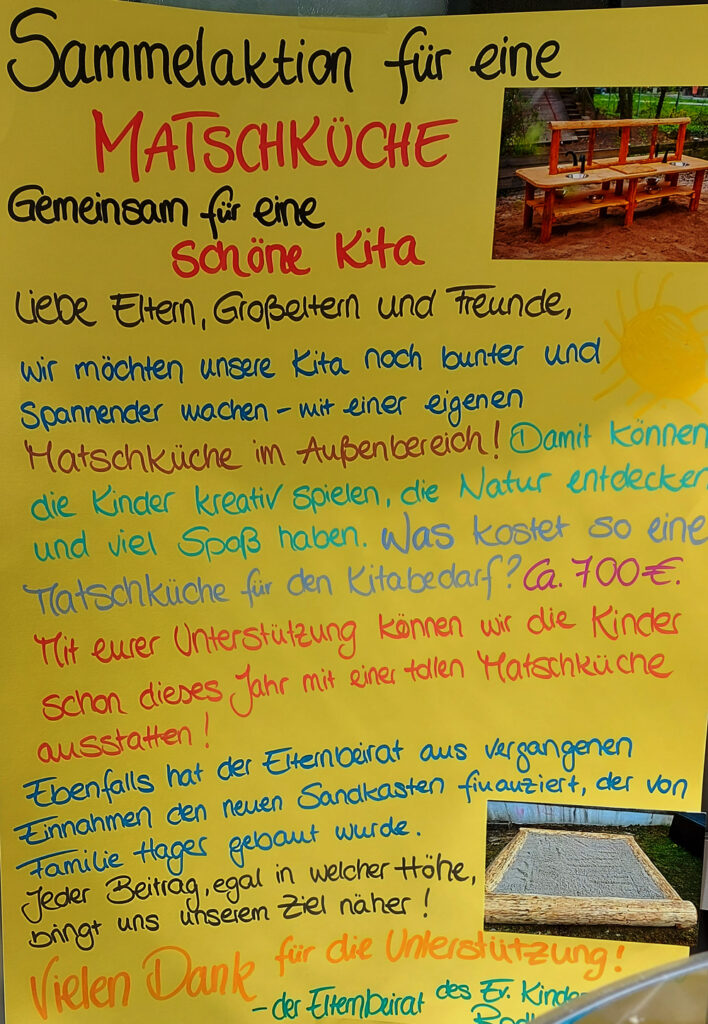 Sammelaktion für eine
MATSCHKÜCHE
Gemeinsam für eine
schöne Kita
Liebe Eltern, Großeltern und Freunde,
wir möchten unsere Kita noch bunter und
Spannender machen - mit einer eigenen
Matschküche im Außenbereich! Damit können
die Kinder kreativ spielen, die Natur entdecken
und viel Spoß haben. Was kostet so eine
Matschküche für den Kitabedarf? Ca. 700€.
Mit eurer Unterstützung können wir die Kinder
schon dieses Jahr mit einer tollen Matschküche
ausstatten!
Ebenfalls hat der Elternbeirat aus vergangenen
Einnahmen den neuen Sandkasten finanziert, der von
Familie Hager gebaut wurde.
Jeder Beitrag, egal in welcher Höhe,
bringt uns unserem Ziel näher!
Vielen Dank für die Unterstützung!
- der Elternbeirat des Ev. Kinder